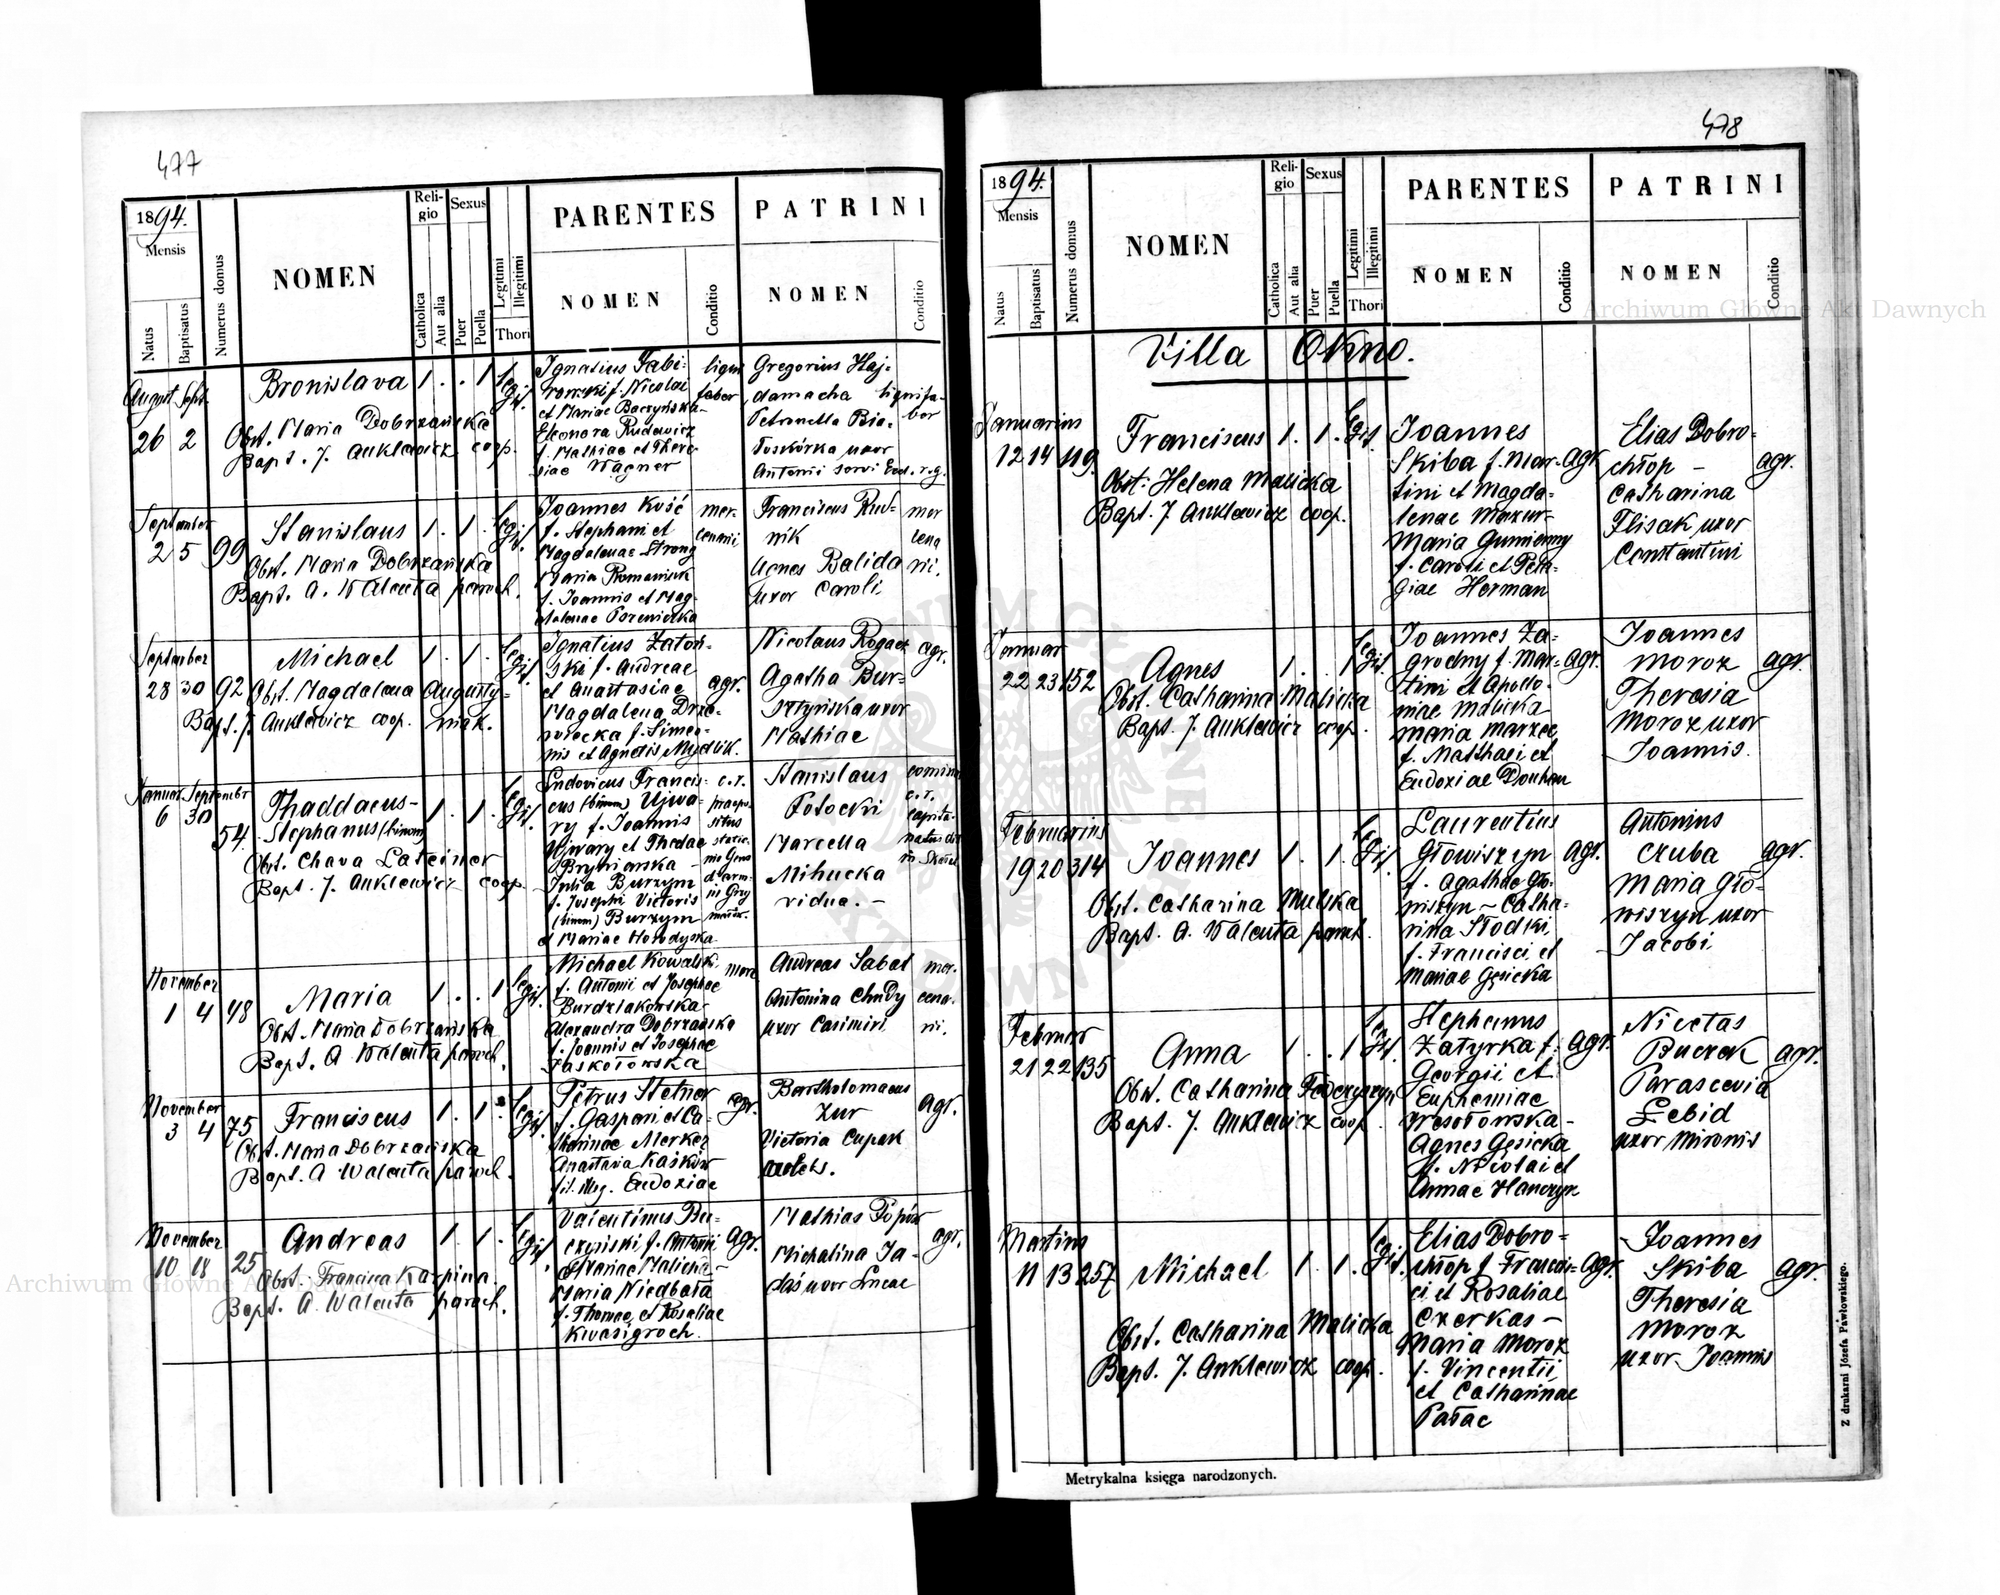 477
1894.
Mensis
Natus
Baptisatus
Numerus domus
NOMEN
Reli-
gio
Catholica
Aut alia
Sexus
Puer
Puella
Legitimi
Illegitimi
Thori
PARENTES
NOMEN
Conditio
PATRINI
NOMEN
Conditio
August Sept.
26 2
Bronislava 1 . . 1 legit.
Obst. Maria Dobrzańska
Bapt. J. Anklewicz coop.
Ignatius Fabi-
rowski f. Nicolai
et Mariae Baczyńska-
Eleonora Rudewicz
f. Mathiae et There-
siae Wagner
ligni
faber
Gregorius Haj-
damacha
Petronella Bia-
łoskórka uxor
Antonii servi Eccl. r. g.
lignifa-
ber
September
2 5 99
Stanislaus 1 . 1 . legit.
Obst. Maria Dobrzańska
Bapt. A. Walenta paroch.
Joannes Kość
f. Stephani et
Magdalenae Strong
Maria Romaniuk
f. Joannis et Mag-
dalenae
mer-
cenarii
Franciscus Rud-
nik
Agnes Balida
uxor Caroli
mer
cena
rii.
September
28 30 92
Michael 1 . 1 . legit.
Obst. Magdalena Augusty-
niak.
Bapt. J. Anklewicz coop.
Ignatius Zatoń-
ski f. Andreae
et Anastasiae
Magdalena Drze-
wiecka f. Simeo-
nis et Agnetis Mydlik.
agr.
Nicolaus Rogacz
Agatha Bur-
sztyńska uxor
Mathiae
agr.
Januar September
6 30
54.
Thaddaeus-
Stephanus (binom)
1 . 1 . legit.
Obst. Chava Lateiner
Bapt. J. Anklewicz coop.
Ludovicus Francis-
cus (binom) Ujwa-
ry f. Joannis
Ujwary et Theclae
Bryniarska -
Julia Burzym
f. Josephi Victoris
(binom) Burzym
et Mariae Horodyska.
c. r.
Stanislaus
Potocki
Marcella
Mihucka
vidua. -
c. r.
November
1 4 48
Maria 1 . . 1 legit.
Obst. Maria Dobrzańska
Bapt. A. Walenta paroch.
Michael Kowalski
f. Antonii et Josephae
Burdziakowska-
Alexandra Dobrzańska
f. Joannis et Josephae
Jaskołowska
merc
Andreas Sabat
Antonina Chudy
uxor Casimiri
mer.
cena-
rii.
November
3 4 75
Franciscus 1 . 1 . legit.
Obst. Maria Dobrzańska
Bapt. A. Walenta paroch.
Petrus Stetner
f. Gaspari et Ca-
tharinae Merkez
Anastasia Kaśków
fil. illeg. Eudoxiae
agr.
Bartholomaeus
Żur
Victoria Cupak
agr.
November
10 18 25
Andreas 1 . 1 . legit.
Obst. Francisca Karpina.
Bapt. A. Walenta paroch.
Valentinus Bu-
czyński f. Antonii
et Mariae Malicha-
Maria Niedbała
f. Thomae et Rosaliae
Kwasigroch.
agr.
Mathias Popów
Michalina Ja-
daś uxor Lucae
agr.
478
1894.
Mensis
Natus
Baptisatus
Numerus domus
NOMEN
Reli-
gio
Catholica
Aut alia
Sexus
Puer
Puella
Legitimi
Illegitimi
Thori
PARENTES
NOMEN
Conditio
PATRINI
NOMEN
Conditio
Villa Okno.
Januarius
12 14 119.
Franciscus 1 . 1 . legit.
Obst. Helena Malicka
Bapt. J. Anklewicz coop.
Joannes
Skiba f. Mar-
tini et Magda-
lenae Mazur-
Maria Gumienny
f. Caroli et Pela-
giae Herman
agr.
Elias Dobro-
chłop -
Catharina
Flisak uxor
Constantini
agr.
Januar
22 23 152
Agnes 1 . . 1 legit.
Obst. Catharina Malicka
Bapt. J. Anklewicz coop.
Joannes Za-
grodny f. Mar-
tini et Apollo-
niae Malicka
Maria Marzec
f. Matthaei et
Eudoxiae Douhan
agr.
Joannes
Moroz
Theresia
Moroz uxor
Joannis.
agr.
Februarius
19 20 314
Joannes 1 . 1 . legit.
Obst. Catharina Mulska
Bapt. A. Walenta paroch.
Laurentius
Głowiszyn
f. Agathae Gło-
wiszyn - Catha-
rina Słodki
f. Francisci et
Mariae Gęsicka
agr.
Antonius
Czuba
Maria Gło-
wiszyn uxor
Jacobi
agr.
Februar
21 22 135
Anna 1 . . 1 legit.
Obst. Catharina Fedczyszyn
Bapt. J. Anklewicz coop.
Stephanus
Zatyrka f.
Georgii et
Euphemiae
Agnes Gęsicka
f. Nicolai et
Annae Hanczyn
agr.
Nicetas
Buczek
Parascevia
Łebid
uxor Mironis
agr.
Martius
11 13 257
Michael 1 . 1 . legit.
Obst. Catharina Malicka
Bapt. J. Anklewicz coop.
Elias Dobro-
chłop f. Francis-
ci et Rosaliae
Czerkas -
Maria Moroz
f. Vincentii
et Catharinae
Pałac
agr.
Joannes
Skiba
Theresia
Moroz
uxor Joannis
agr.
Metrykalna księga narodzonych.
Z drukarni Józefa Pawłowskiego.
Archiwum Główne Akt Dawnych
Archiwum Główne Akt Dawnych